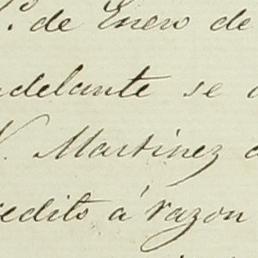 1º. de Enero de
adelante se
N. Martinez
redito á razon